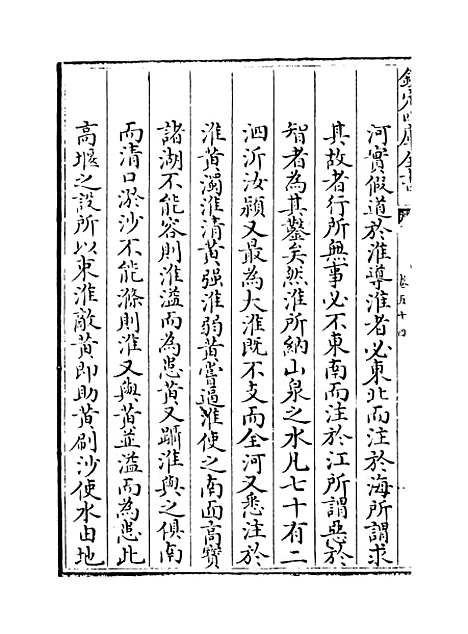 欽定四庫全書
卷五十四
河實假道於淮導淮者必東北而注於海所謂求
其故者行所無事必不東南而注於江所謂惡於
智者為其鑿矣然淮所納山泉之水凡七十有二
泗沂汝潁又最為大淮既不支而全河又悉注於
淮黄濁淮清黄强淮弱黄嘗逼淮使之南面高寳
諸湖不能容則淮溢而為患黄又躡淮與之俱南
而清口淤沙不能滌則淮又與黄並溢而為患此
高堰之設所以束淮敵黄即助黄刷沙使水由地